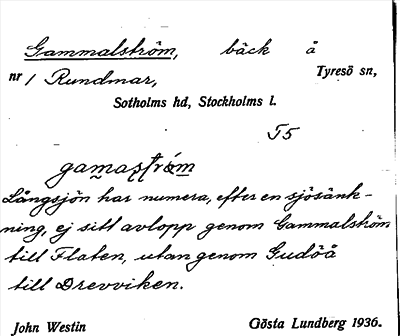 Gammalström, bäck å
nr 1 Rundmar, Tyresö sn,
Sotholms hd, Stockholms l.
T5
gamastróm
Långsjön har numera, efter en sjösänk-
ning, ej sitt avlopp genom Gammalström
till Flaten, utan genom Gudöå
till Drevviken.
John Westin Gösta Lundberg 1936.